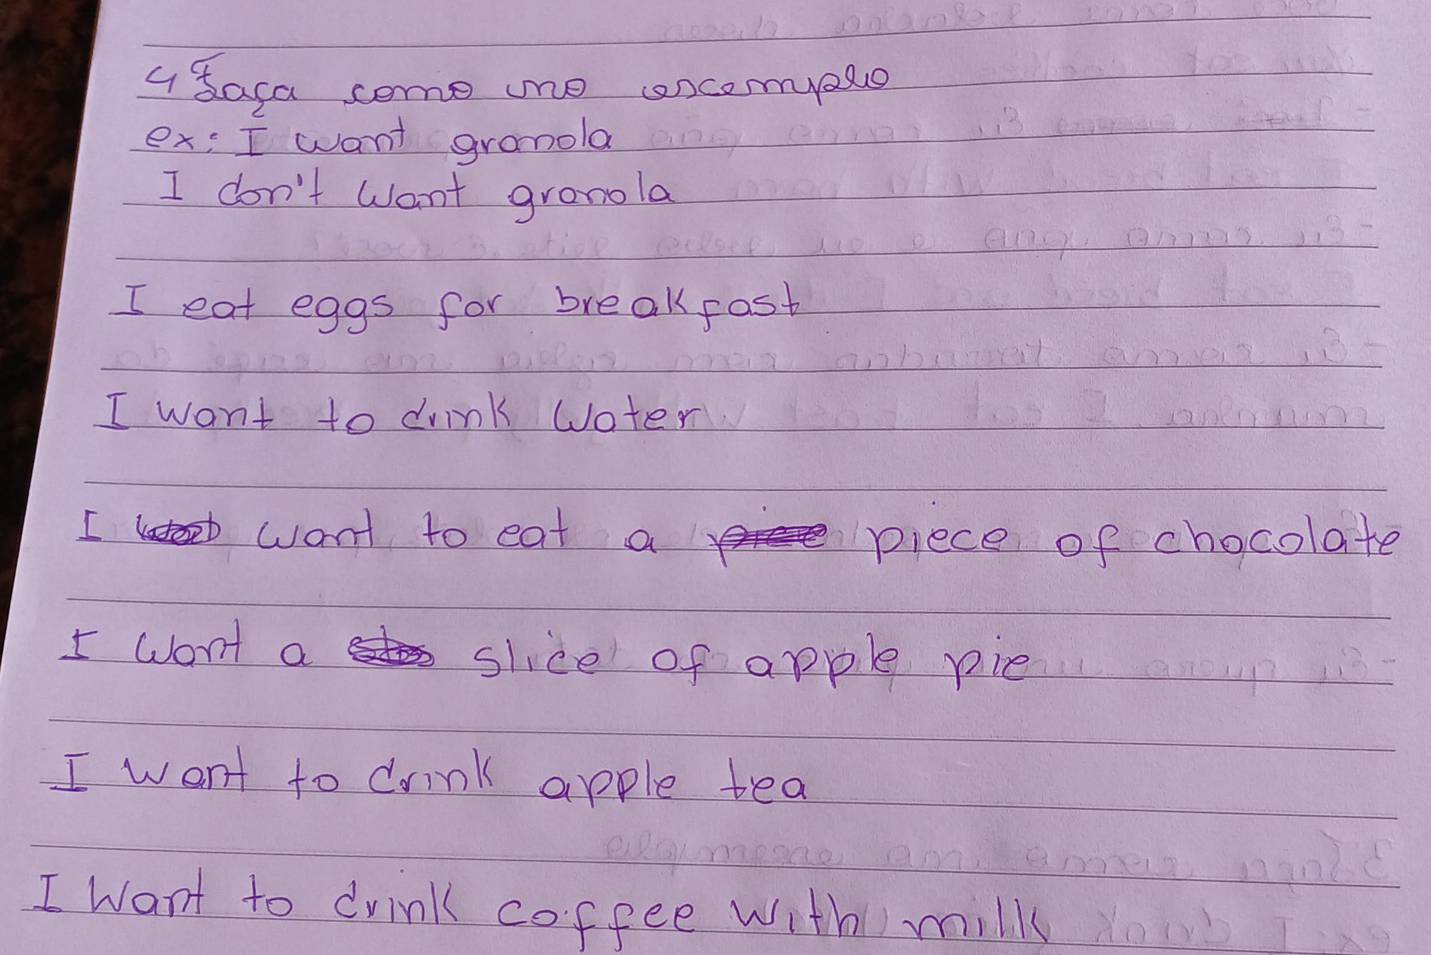 4 Faça como no excemplo
ex: I want granola
I don't want granola
I eat eggs for breakfast
I want to drink water
I want to eat a piece of chocolate
I want a slice of apple pie
I want to drink apple tea
I want to drink coffee with milk